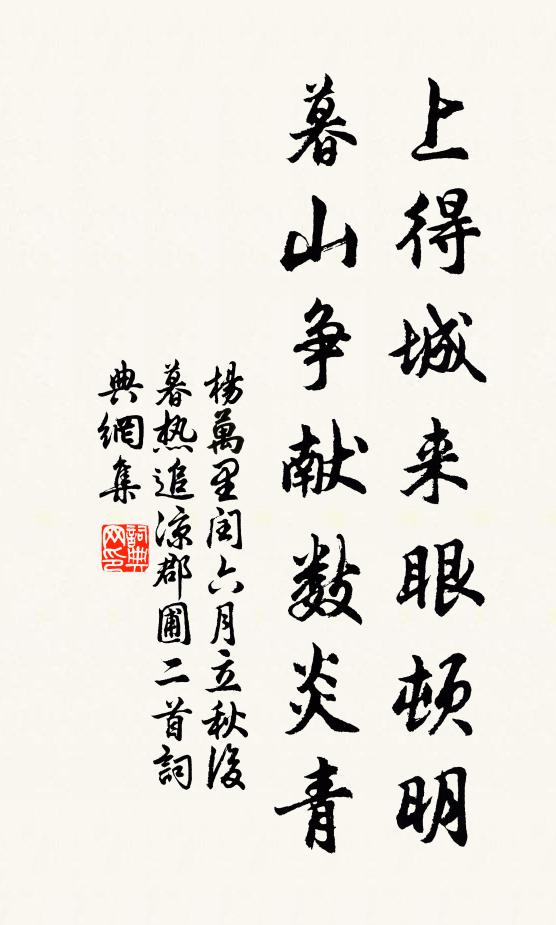 上得城来眼顿明
暮山争献数炎青
楊萬里闰六月立秋後
暮热追凉郡圃二首詞
典網集
詞典
网印